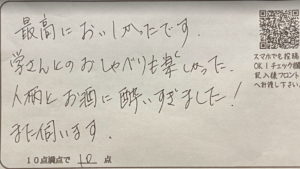 最高においしかったです。
学さんとのおしゃべりも楽しかった。
人柄とお酒に酔いすぎました！
また伺います。
10点満点で 10 点
スマホでも投稿
OK！チェック欄
記入後フロント
へお渡し下さい。